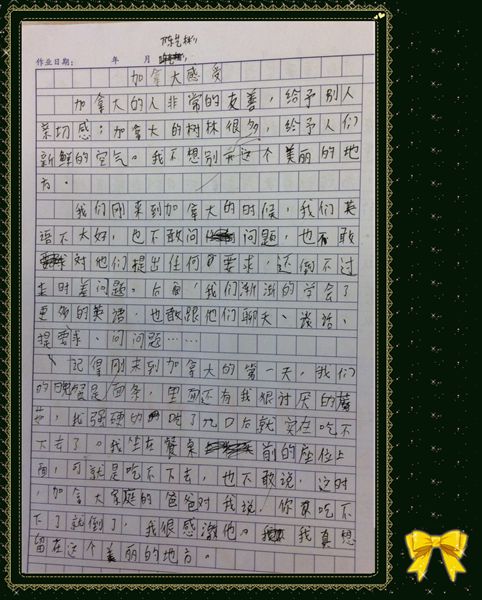 陈艺彬
作业日期： 年 月
加拿大感受
加拿大的人非常的友善，给予别人
亲切感；加拿大的树林很多，给予人们
新鲜的空气。我不想别开这个美丽的地
方。
我们刚来到加拿大的时候，我们英
语不太好，也不敢问问题，也不敢
对他们提出任何要求，还倒不过
来时差问题。后面，我们渐渐的学会了
更多的英语，也敢跟他们聊天、谈话、
提要求、问问题……
记得刚来到加拿大的第一天，我们
的晚餐是面条，里面还有我很讨厌的蘑
菇，我强硬的吃了几口后就实在吃不
下去了。我坐在餐桌前的座位上
面，可就是吃不下去，也不敢说，这时
，加拿大家庭的爸爸对我说，你要吃不
下了就倒了，我很感激他。我真想
留在这个美丽的地方。